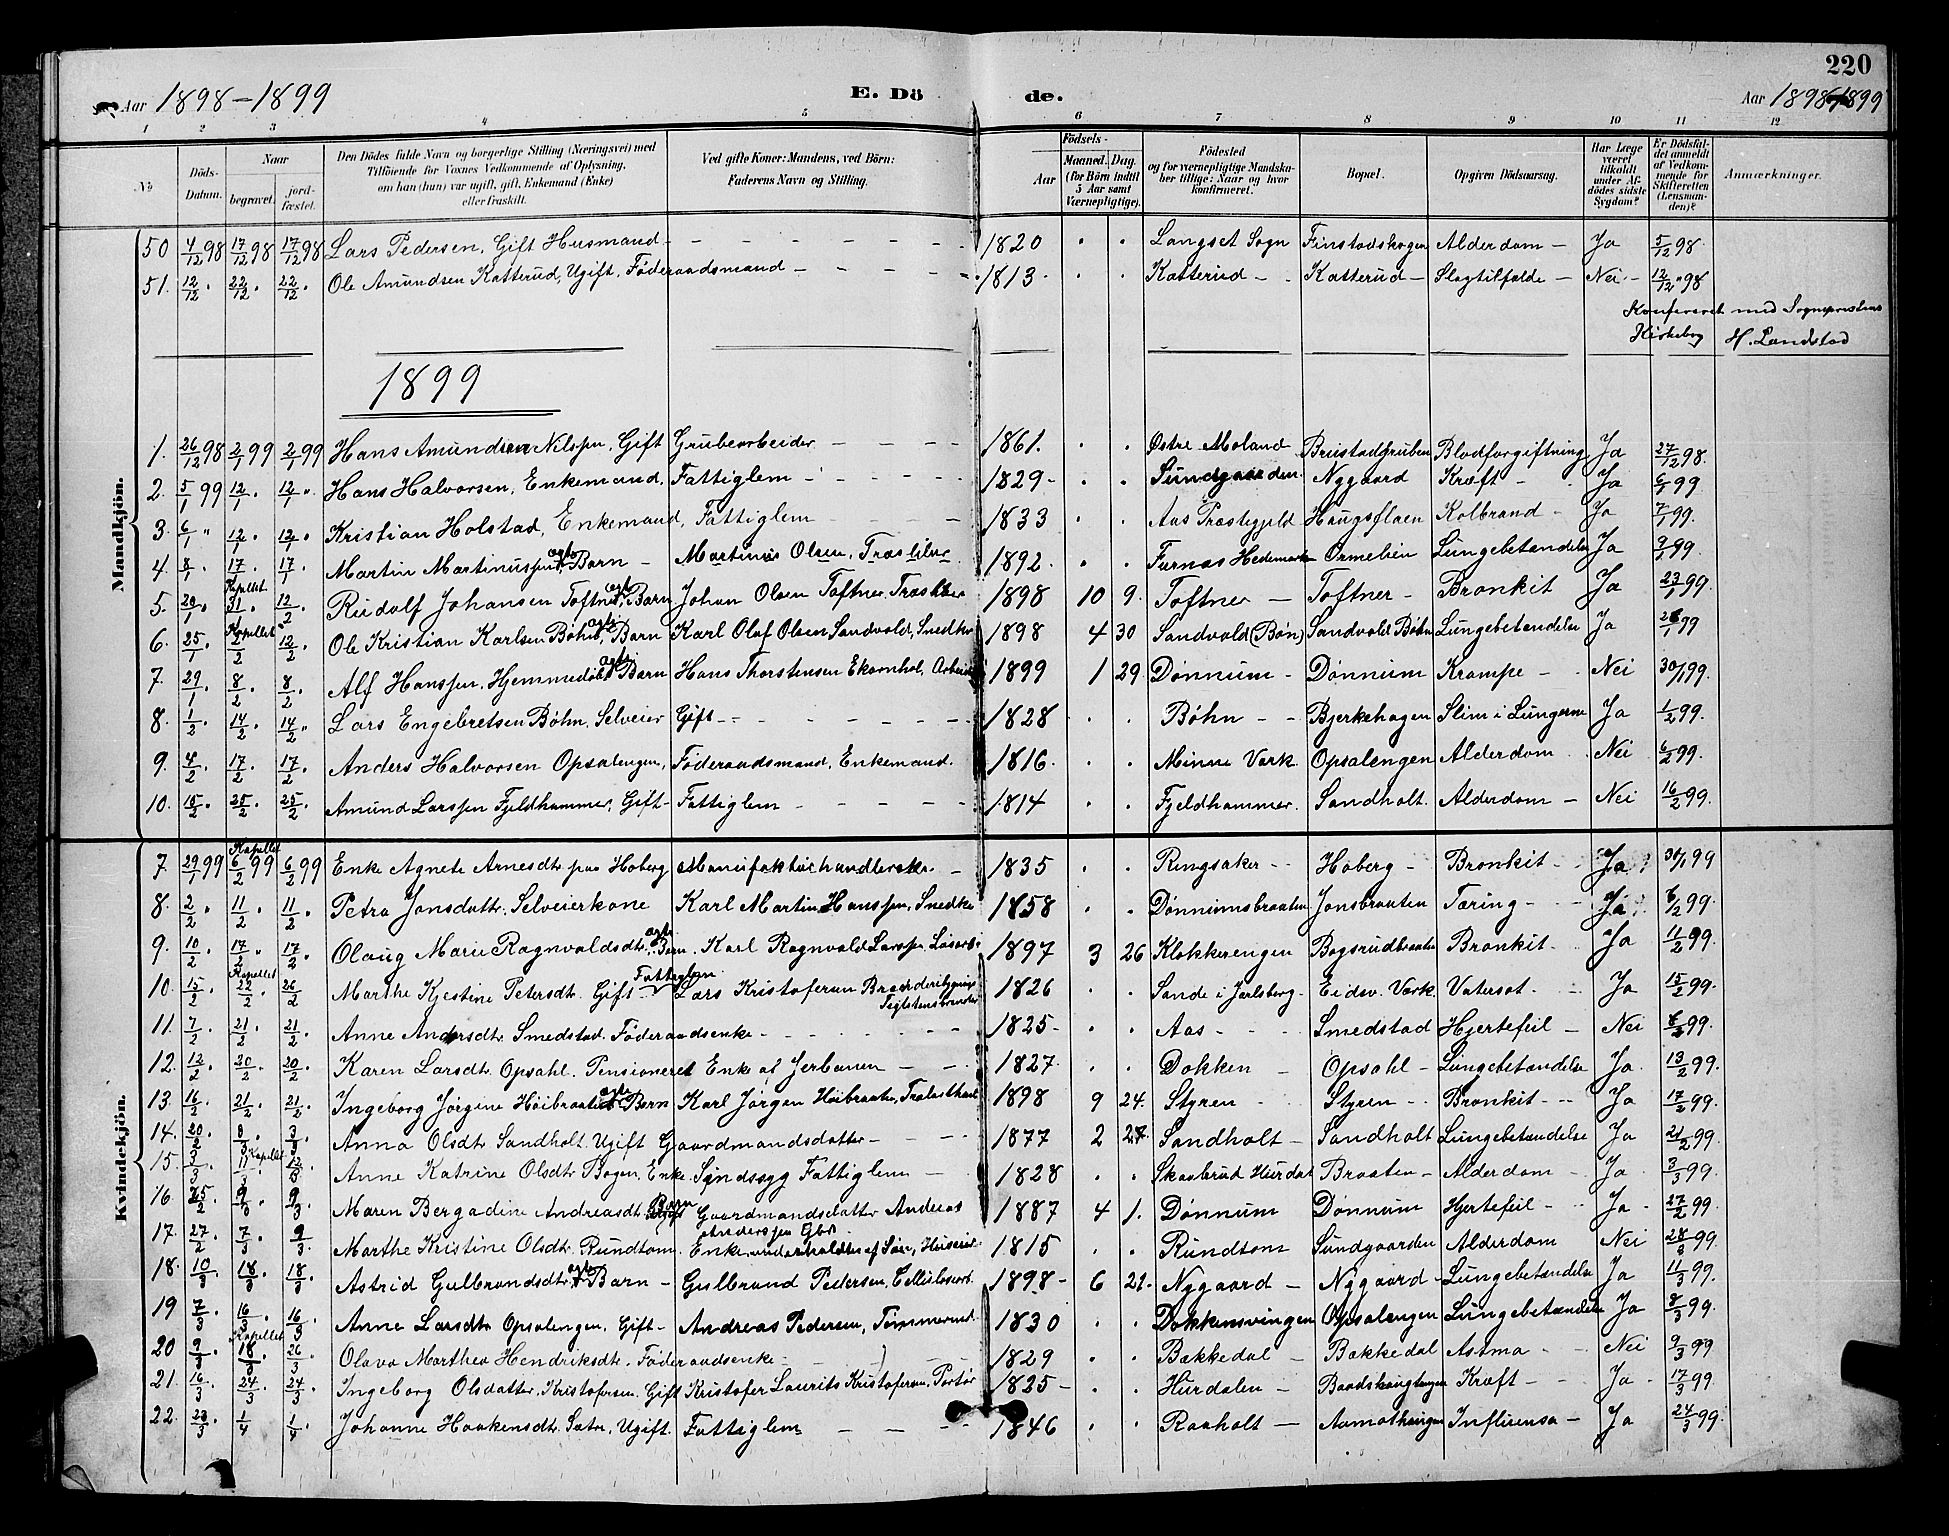 220
Aar 1898-1899 E. Dö de. Aar 1898-1899
1 2 3 4 5 6 7 8 9 10 11 12
No
Döds-Datum.
Naar
begravet.
jord-fæstet.
Den Dödes fulde Navn og borgerlige Stilling (Næringsvei) med Tilföiende for Voxnes Vedkommende af Oplysning, om han (hun) var ugift, gift, Enkemand (Enke) eller fraskilt.
Ved gifte Koner: Mandens, ved Börn: Faderens Navn og Stilling.
Födsels-
Aar
Maaned. Dag.
(for Börn indtil 5 Aar samt Værnepligtige).
Födested og for værnepligtige Mandskaber tillige: Naar og hvor konfirmeret.
Bopæl.
Opgiven Dödsaarsag.
Har Læge været tilkaldt under Afdödes sidste Sygdom?
Er Dödsfaldet anmeldt af Vedkommende for Skifteretten (Lensmanden)?
Anmærkninger.
Mandkjön.
50 4/12 98 17/12 98 17/12 98 Lars Pedersen, Gift Husmand 1820 Langset Sogn Finstadskogen Alderdom Ja 5/12 98
51. 12/12 22/12 22/12 Ole Amundsen Katterud, Ugift, Føderaadsmand 1813 Katterud Katterud Slagtilfælde Nei 12/12 98
Konfereret med Sogneprestens
Kirkebog H. Landstad
1899
1. 26/12 98 2/1 99 2/1 99 Hans Amundsen Nilssen, Gift Grubearbeider 1861. Østre Moland Brustadgruben Blodforgiftning Ja 27/12 98.
2. 5/1 99 12/1 12/1 Hans Halvorsen, Enkemand, Fattiglem 1829 Sundgaarden Nygaard Kræft Ja 6/1 99
3. 6/1 12/1 12/1 Kristian Holstad, Enkemand, Fattiglem 1833 Aas Præstegjeld Haugsflaen Kolbrand Ja 7/1 99.
4. 8/1 17/1 17/1 Martin Martinussen, ægte Barn Martinus Olsen, Træsliber 1892. Furnæs Hedemark Ormelien Lungebetændelse Ja 9/1 99.
5. 20/1 Kapellet 31/1 12/2 Rudolf Johansen Toftner, ægte Barn Johan Olsen Toftner, Træsliber 1898 10 9. Toftner Toftner Bronkit Ja 23/1 99.
6. 25/1 Kapellet 2/2 12/2 Ole Kristian Karlsen Bøhn, ægte Barn Karl Olaf Olsen Sandvold, Snedker 1898 4 30 Sandvold (Bøn) Sandvold Bøhn Lungebetændelse Ja 26/1 99
7. 29/1 8/2 8/2 Alf Hanssen, Hjemmedøbt ægte Barn Hans Thorstensen Ekornhol, Arbeid 1899 1 29. Dønnum Dønnum Krampe Nei 30/1 99.
8. 1/2 14/2 14/2 Lars Engebretsen Bøhn, Selveier Gift 1828 Bøhn Bjerkehagen Slim i Lungerne Ja 1/2 99.
9. 4/2 17/2 17/2 Anders Halvorsen Opsalengen, Føderaadsmand, Enkemand. 1816. Minne Værk Opsalengen Alderdom Nei 6/2 99.
10. 15/2 25/2 25/2 Amund Larssen Fjeldhammer, Gift Fattiglem 1814 Fjeldhammer. Sandholt. Alderdom Nei 16/2 99.
Kvindekjön.
7. 29/1 99 Kapellet 6/2 99 6/2 99 Enke Agnete Arnesdtr. paa Hoberg Manufakturhandlerske. 1835 Ringsaker Hoberg Bronkit Ja 30/1 99
8. 2/2 11/2 11/2 Petra Jonsdatr. Selveierkone Karl Martin Hanssen, Snedker 1858 Dønnumsbraaten Jonsbraaten Tæring Ja 6/2 99.
9. 10/2 17/2 17/2 Olaug Marie Ragnvaldsdtr. ægte Barn. Karl Ragnvald Larssen, Løsarb. 1897 3 26 Klokkerengen Bogsrudbraaten Bronkit Ja 11/2 99.
10. 15/2 Kapellet 22/2 26/2 Marthe Kjestine Petersdtr. Gift Fattiglem Lars Kristofersen Brænderibygning Teglstensbrænder 1826 Sande i Jarlsberg Eidsv. Værk. Vatersot Ja 15/2 99.
11. 7/2 21/2 21/2 Anne Andersdtr. Smedstad Føderaadsenke 1825 Aas Smedstad Hjertefeil Nei 8/2 99.
12. 12/2 20/2 20/2 Karen Larsdtr. Opsahl. Pensioneret Enke af Jerbanen 1827. Dokken Opsahl Lungebetændelse Ja 13/2 99.
13. 16/2 21/2 21/2 Ingeborg Jørgine Høibraaten ægte Barn Karl Jørgen Høibraaten, Trælasthandl 1898 9 24. Styren Styren Bronkit Ja 17/2 99.
14. 20/2 3/3 3/3 Anna Olsdtr Sandholt, Ugift Gaardmandsdatter 1877 2 27. Sandholt Sandholt Lungebetændelse Ja 21/2 99.
15. 3/3 Kapellet 11/3 12/3 Anne Katrine Olsdtr. Bogen, Enke. Sindssyg Fattiglem 1828 Skaabrud Hurdal Braaten Alderdom Ja 3/3 99.
16 25/2 9/3 9/3 Maren Bergadine Andreasdtr. Barn Gaardmandsdatter Andreas Anderssen Ebr. 1887 4 1. Dønnum Dønnum Hjertefeil Ja 27/2 99.
17. 27/2 7/3 9/3 Marthe Kristine Olsdtr. Rundtom. Enke, underholdtes af Søn, Huseier 1815 Rundtom Sundgaarden Alderdom Nei 28/3 99.
18. 10/3 18/3 18/3 Astrid Gulbrandsdtr. ægte Barn Gulbrand Pedersen, Cellulosearb. 1898 6 21. Nygaard Nygaard Lungebetændelse Ja 11/3 99.
19 7/3 16/3 16/3 Anne Larsdtr Opsalengen, Gift Andreas Pedersen, Tømmermd. 1830 Dokkensvingen Opsalengen Lungebetændelse Ja 8/3 99.
20 9/3 Kapellet 18/3 26/3 Olava Marthea Hendriksdtr. Føderaadsenke 1829 Bækkedal Bækkedal Astma Nei 9/3 99
21. 16/3 24/3 24/3 Ingeborg Olsdatter, Kristofersen, Gift Kristofer Laurits Kristofersen, Portør 1825 Hurdalen Baadshaugtangen Kræft Ja 17/3 99.
22. 23/3 1/4 1/4 Johanne Haakensdtr. Sætre, Ugift. Fattiglem 1846 Raaholt Aamothaugen Influensa Ja 24/3 99.